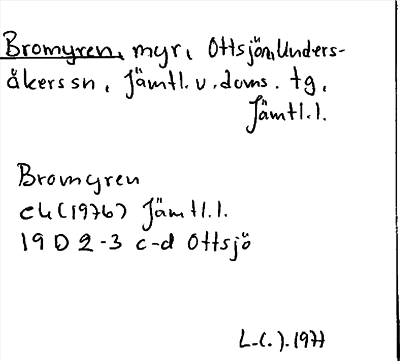 Bromyren, myr, Ottsjön, Unders-
åkers sn, Jämtl. v. doms. tg,
Jämtl.l.
Bromyren
ek (1976) Jämtl.l.
19 D 2-3 c-d Ottsjö
L-C.J. 1977